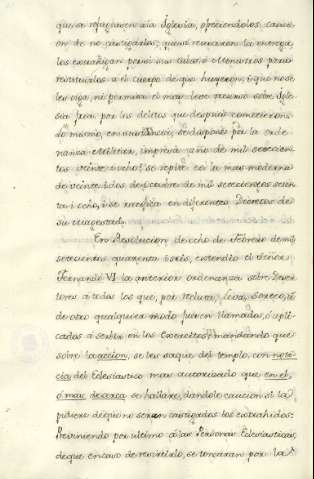 que se refugiasen a la Iglesia, ofreciendolos, caucion
on de no castigarlos; que si reusaren la entrega,
los extraigan por sus Cabos, ó Ministros para
restituirlos a el cuerpo de que huyeron; i que no se
les oiga, ni permita el mas leve recurso sobre Igle-
sia fria por los delitos que despues cometieren:
do mismo, en sustancia, se dispuso por la orde-
nanza Militar, impresa año de mil setecien-
tos veinte i ocho; se repite en la mas moderna
de veinte i dos de octubre de mil setecientos sesen-
ta i ocho, i se ratifica en diferentes Decretos de
su Magestad.
En Resolucion de ocho de Febrero de mil
setecientos quarenta i seis, extendió el Señor
Fernando VI la anterior ordenanza sobre Deser-
tores a todos los que, por recluta, leva, sorteo, ú
de otro qualquiera modo fueren llamados, ó apli-
cados a servir en los Exercitos; mandando que
sobre la accion, se les saque del templo, con noti-
cia del Eclesiastico mas autorizado que en el,
ó mas de cerca se hallare, dandole caucion si la
pidiere de que no seran castigados los extrahidos:
Previniendo por ultimo á las Personas Eclesiasticas,
de que en caso de resistirlo, se tomaran por la